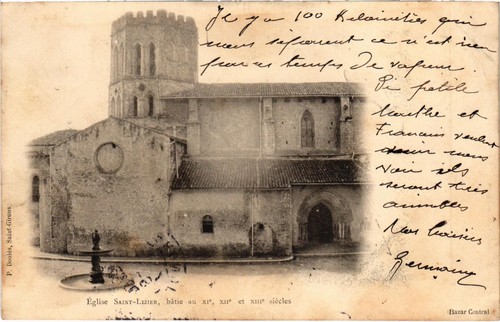 Il y a 100 Kilomètres qui
nous séparent ce n'est rien
par ce temps de vapeur.
Si petite
Marthe et
François veulent
venir nous
voir ils
seront très
aimables
Nos baisers
Germaine
P. Douste, Saint-Girons.
Église SAINT-LIZIER, bâtie au XIe, XIIe et XIIIe siècles
Bazar Central